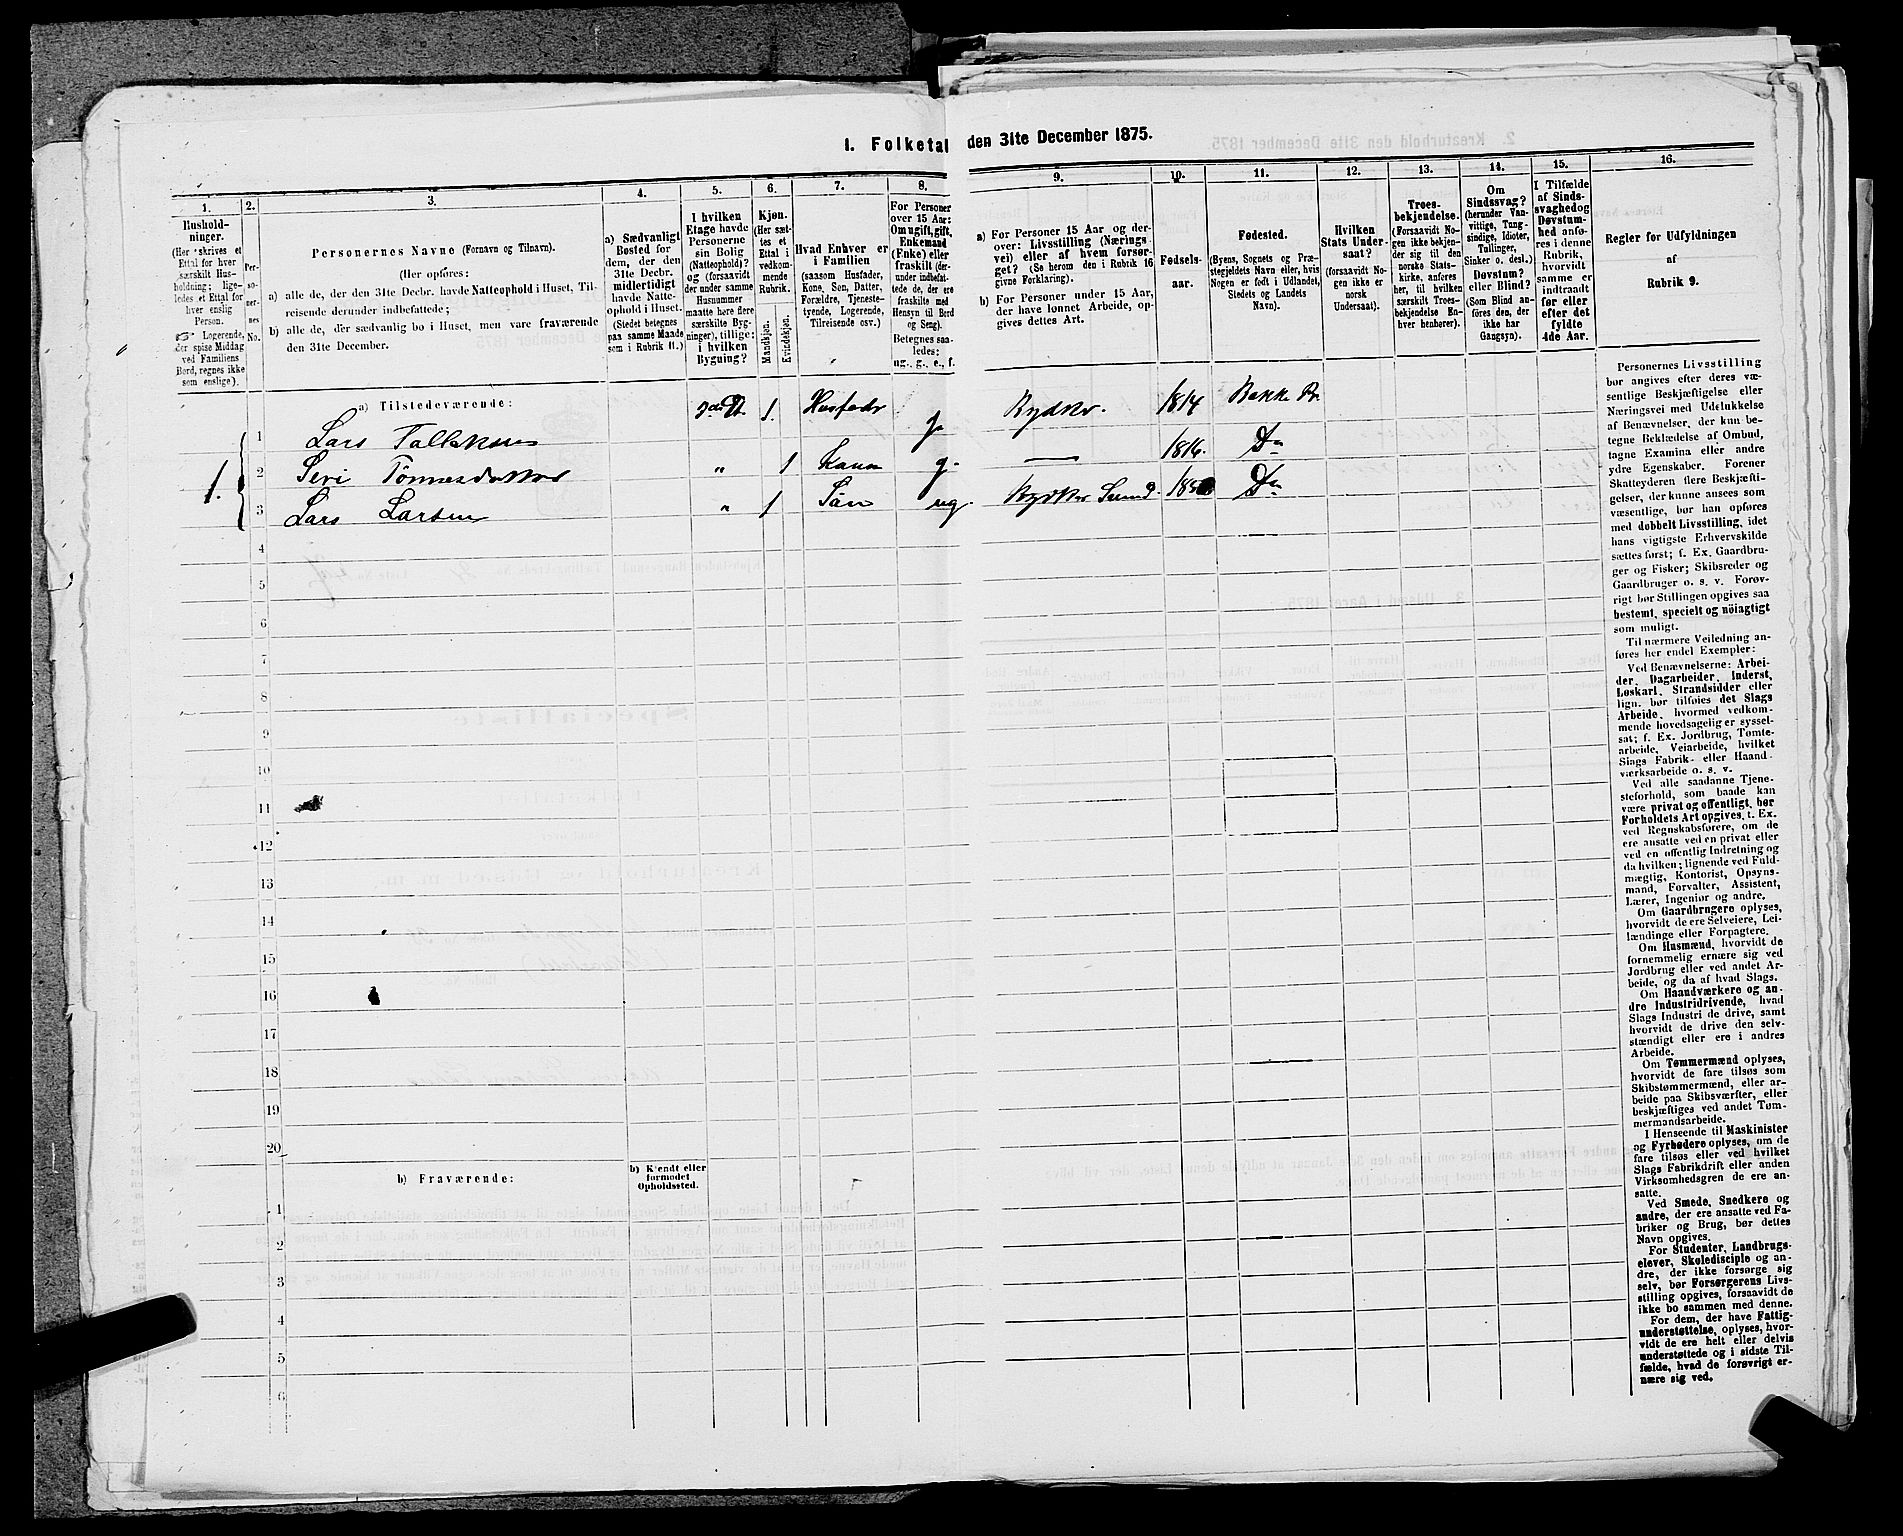 1. Folketal den 31te December 1875.
1. 2. 3. 4. 5. 6. 7. 8. 9. 10. 11. 12. 13. 14. 15. 16.
Hushold-
ninger.
(Her skrives et
Ettal for hver
særskilt Hus-
holdning; lige-
ledes et Ettal for
hver enslig
Person.
Logerende,
der spise Middag
ved Familiens
Bord, regnes ikke
som enslige).
Per-
so-
ner-
nes
No.
Personernes Navne (Fornavn og Tilnavn).
(Her opføres:
a) alle de, der den 31te Decbr. havde Natteophold i Huset, Til-
reisende derunder indbefattede;
b) alle de, der sædvanlig bo i Huset, men vare fraværende
den 31te December.
a) Sædvanligt
Bosted for
dem, der den
31te Decbr.
midlertidigt
havde Natte-
ophold i Huset.
(Stedet betegnes
paa samme Maade
som i Rubrik 11.)
I hvilken
Etage havde
Personerne
sin Bolig
(Natteophold)?
og (forsaavidt
der under samme
Husnummer
maatte høre flere
særskilte Byg-
ninger), tillige:
i hvilken
Bygning?
Kjøn.
(Her sæt-
tes et
Ettal i
vedkom-
mende
Rubrik.
Mandkjøn.
Kvindekjøn.
Hvad Enhver er
i Familien
(saasom Husfader,
Kone, Søn, Datter,
Forældre, Tjeneste-
tyende, Logerende,
Tilreisende osv.)
For Personer
over 15 Aar:
Om ugift, gift,
Enkemand
(Enke) eller
fraskilt (der-
under indbefat-
tede de, der ere
fraskilte med
Hensyn til Bord
og Seng).
Betegnes saa-
ledes:
ug., g., e., f.
a) For Personer 15 Aar og der-
over: Livsstilling (Nærings-
vei) eller af hvem forsør-
get? (Se herom den i Rubrik 16
givne Forklaring).
b) For Personer under 15 Aar,
der have lønnet Arbeide, op-
gives dettes Art.
Fødsels-
aar.
Fødested.
(Byens, Sognets og Præ-
stegjeldets Navn eller, hvis
Nogen er født i Udlandet,
Stedets og Landets
Navn).
Hvilken
Stats Under-
saat?
(forsaavidt No-
gen ikke er
norsk
Undersaat).
Troes-
bekjendelse.
(Forsaavidt No-
gen ikke bekjen-
der sig til den
norske Stats-
kirke, anføres
her, til hvilken
særskilt Troes-
bekjendelse En-
hver henhører).
Om
Sindssvag?
(herunder Van-
vittige, Tung-
sindige, Idioter,
Tullinger,
Sinker o. desl.)
Døvstum?
eller Blind?
(Som Blind an-
føres den, der
ikke har
Gangsyn).
I Tilfælde
af Sinds-
svaghed og
Døvstum-
hed anfø-
res i denne
Rubrik,
hvorvidt
samme er
indtraadt
før eller
efter det
fyldte
4de Aar.
Regler for Udfyldningen
af
Rubrik 9.
a) Tilstedeværende:
1 Lars Tallaksen 1 Husfader g. 1814 Bakke Pr.
2 Siri Tönnesdatter „ 1 Kone g. 1816. Do
3 Lars Larsen „ 1 Sön ug. Do
1.
4
5
6
7
8
9
10
11
12
13
14
15
16
17
18
19
20
b) Fraværende:
b) Kjendt eller
formodet
Opholdssted.
1
2
3
4
5
6
Personernes Livsstilling
bør angives efter deres væ-
sentlige Beskjæftigelse eller
Næringsvei med Udelukkelse
af Benævnelser, der kun be-
tegne Beklædelse af Ombud,
tagne Examina eller andre
ydre Egenskaber. Forener
Skatteyderen flere Beskjæfti-
gelser, der kunne ansees som
væsentlige, bør han opføres
med dobbelt Livsstilling, idet
hans vigtigste Erhvervskilde
sættes først; f. Ex. Gaardbru-
ger og Fisker; Skibsreder og
Gaardbruger o. s. v. Forøv-
rigt bør Stillingen opgives saa
bestemt, specielt og nöiagtigt
som muligt.
Til nærmere Veiledning an-
føres her endel Exempler:
Ved Benævnelserne: Arbei-
der, Dagarbeider, Inderst,
Løskarl, Strandsidder eller
lign. bør tilføies det Slags
Arbeide, hvormed vedkom-
mende hovedsagelig er syssel-
sat; f. Ex. Jordbrug, Tømte-
arbeide, Veiarbeide, hvilket
Slags Fabrik- eller Haand-
værksarbeide o. s. v.
Ved alle saadanne Tjene-
steforhold, som baade kan
være privat og offentligt, bør
Forholdets Art opgives, t. Ex.
ved Regnskabsførere, om de
ere ansatte ved en privat eller
ved en offentlig Indretning og
da hvilken; lignende ved Fuld-
mægtig, Kontorist, Opsyns-
mand, Forvalter, Assistent,
Lærer, Ingeniør og andre.
Om Gaardbrugere oplyses,
hvorvidt de ere Selveiere, Lei-
lændinge eller Forpagtere.
Om Husmænd, hvorvidt de
fornemmelig ernære sig ved
Jordbrug eller ved andet Ar-
beide, og da af hvad Slags.
Om Haandværkere og an-
dre Industridrivende, hvad
Slags Industri de drive, samt
hvorvidt de drive den selv-
stændigt eller ere i andres
Arbeide.
Om Tømmermænd oplyses,
hvorvidt de fare tilsøs som
Skibstømmermænd, eller ar-
beide paa Skibsværfter, eller
beskjæftiges ved andet Tøm-
mermandsarbeide.
I Henseende til Maskinister
og Fyrbødere oplyses, om de
fare tilsøs eller ved hvilket
Slags Fabrikdrift eller anden
Virksomhedsgren de ere an-
satte.
Ved Smede, Snedkere og
andre, der ere ansatte ved Fa-
briker og Brug, bør dettes
Navn opgives.
For Studenter, Landbrugs-
elever, Skoledisciple og an-
dre, der ikke forsørge sig
selv, bør Forsørgerens Livs-
stilling opgives, forsaavidt de
ikke bo sammen med denne.
For dem, der have Fattig-
understøttelse, oplyses, hvor-
vidt de ere helt eller delvis
understøttede og i sidste Til-
fælde, hvad de forøvrigt er-
nære sig ved.